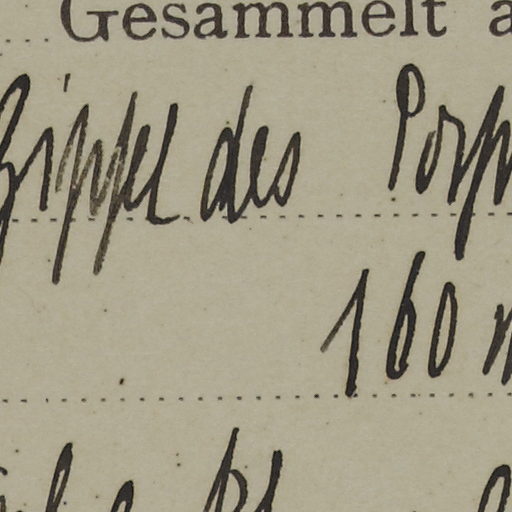 Gesammelt a
Gipfel des Porp
160 m